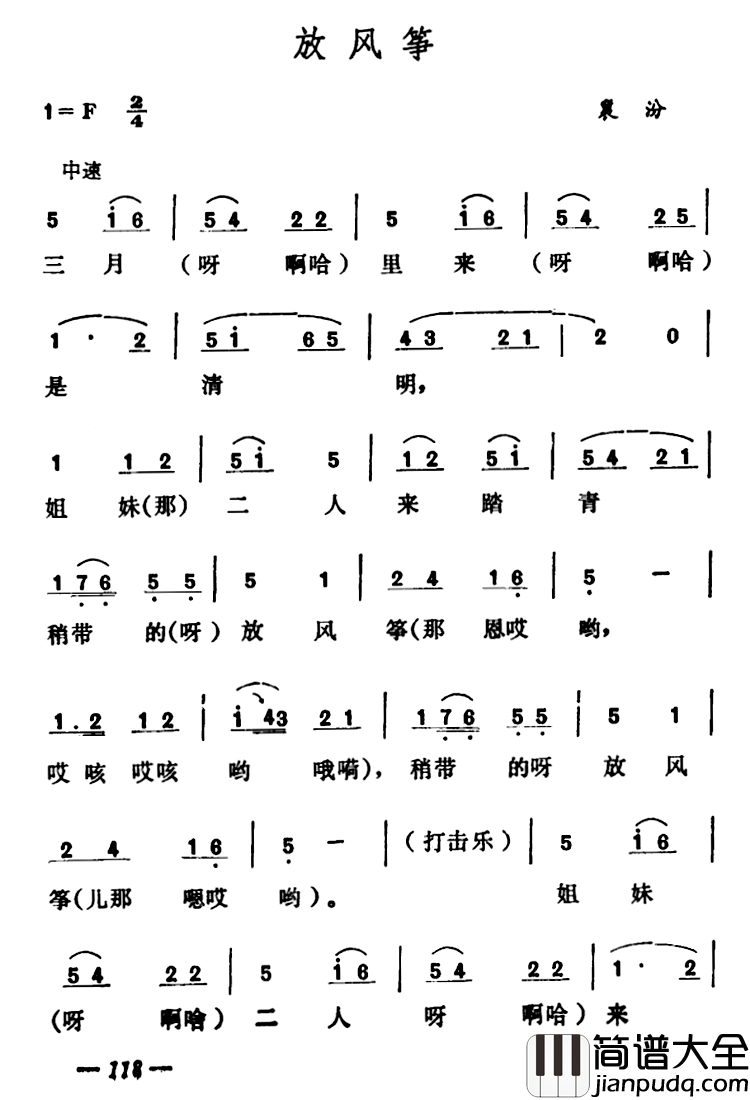 放风筝
1=F 2/4 襄汾
中速
5 i6 | 54 22 | 5 i6 | 54 25 |
三月(呀 啊哈)里来(呀 啊哈)
1· 2 | 5i 65 | 43 21 | 2 0 |
是 清 明,
1 12 | 5i 5 | 12 5i | 54 21 |
姐 妹(那)二 人 来 踏 青
176 55 | 5 1 | 24 16 | 5 — |
稍带 的(呀)放 风 筝(那 恩哎 哟,
1.2 12 | i 43 21 | 176 55 | 5 1 |
哎咳 哎咳 哟 哦嗬),稍带 的呀 放 风
24 16 | 5 — | (打击乐) | 5 i6 |
筝(儿那 嗯哎 哟)。 姐 妹
54 22 | 5 i6 | 54 22 | 1· 2 |
(呀 啊哈)二 人 呀 啊哈)来
— 118 —
简谱大全
jianpudq.com